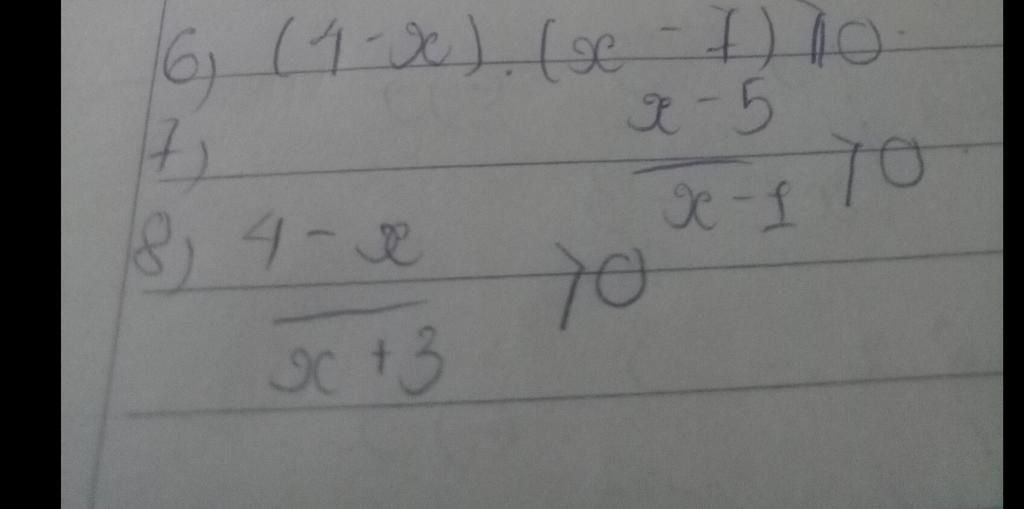 6) (4-x).(x-7)⩾0
7) x-5
x-1 >0
8) 4-x
x+3 >0